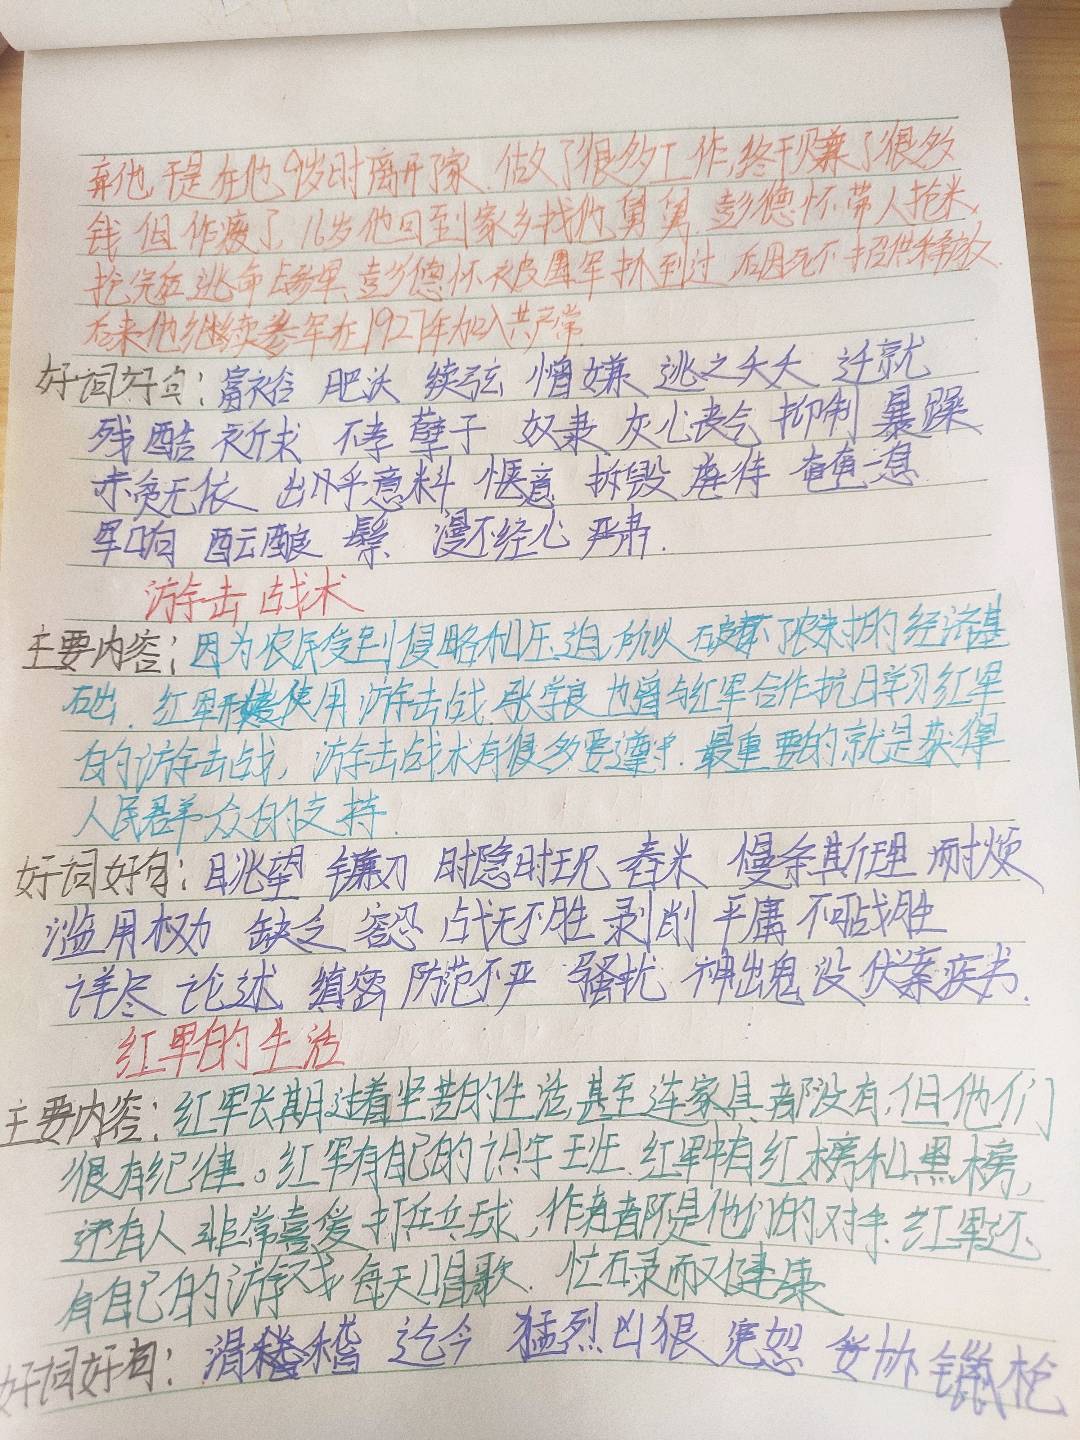 弃他,于是在他9岁时离开了家.做了很多工作,终于赚了很多
钱但作废了.16岁他回到家乡找他舅舅.彭德怀带人抢米,
抢完后逃命去参军,彭德怀被国军抓到过后因死不招供释放.
后来他继续参军在1927年加入共产党.
好词好句:富裕 肥沃 续弦 憎嫌 逃之夭夭 迁就
残酷 祈求 不孝 孽子 奴隶 灰心丧气 抑制 暴躁
赤贫无依 出乎意料 惬意 拆毁 虐待 奄奄一息
军响 酝酿 鬃 漫不经心 严肃.
游击战术
主要内容:因为农民受到侵略和压迫,所以破坏了农村的经济基
础.红军使用游击战.张学良也曾与红军合作抗日学习红军
的游击战,游击战术有很多要遵守.最重要的就是获得
人民群众的支持.
好词好句:眺望 镰刀 时隐时现 舂米 慢条斯理 耐烦
滥用权力 缺乏 容忍 战无不胜 剥削 平庸 不可战胜
详尽 论述 缜密 防范不严 骚扰 神出鬼没 伏案疾书.
红军的生活
主要内容:红军长期过着坚苦的生活,甚至连家具都没有,但他们
很有纪律。红军有自己的识字班.红军中有红榜和黑榜,
还有人非常喜爱打乒乓球,作者都是他们的对手.红军还
有自己的游戏每天唱歌.忙碌而又健康
好词好句:滑稽 迄今 猛烈 凶狠 宽恕 妥协 枪